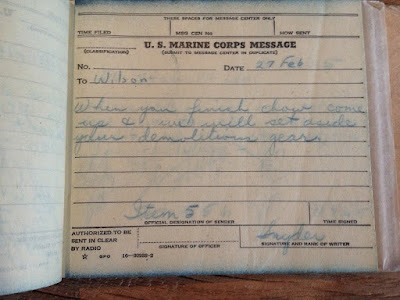 THESE SPACES FOR MESSAGE CENTER ONLY
TIME FILED MSG CEN No. HOW SENT
U. S. MARINE CORPS MESSAGE
(CLASSIFICATION) (SUBMIT TO MESSAGE CENTER IN DUPLICATE)
No. DATE 27 Feb
To Wilson
When you finish chow come
up & we will set aside
your demolitions gear.
Item 5
OFFICIAL DESIGNATION OF SENDER TIME SIGNED
AUTHORIZED TO BE
SENT IN CLEAR
BY RADIO
Snyder
SIGNATURE OF OFFICER SIGNATURE AND RANK OF WRITER
☆ GPO